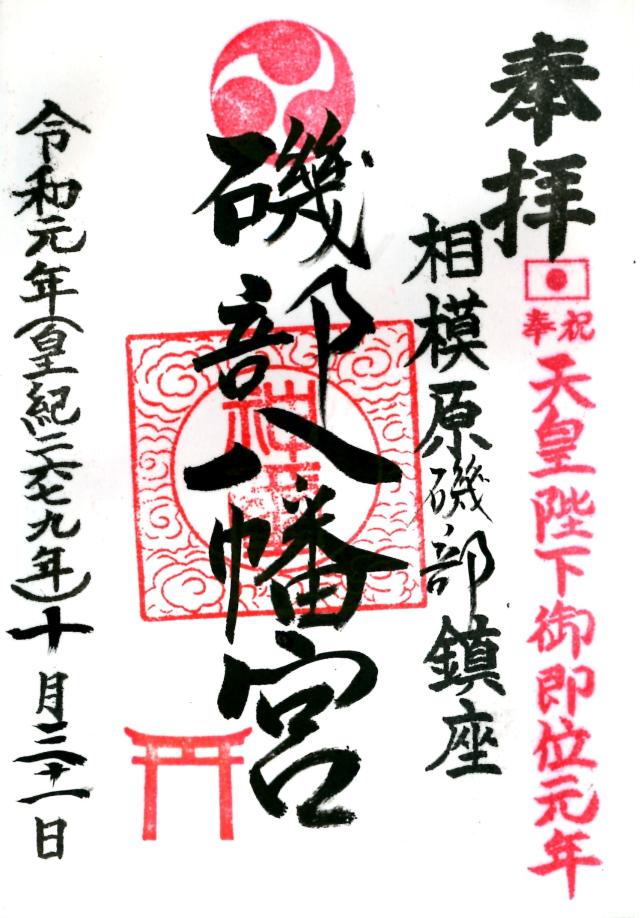 奉拝
奉祝
天皇陛下御即位元年
相模原磯部鎮座
磯部八幡宮
令和元年(皇紀二六七九年)十月三十一日